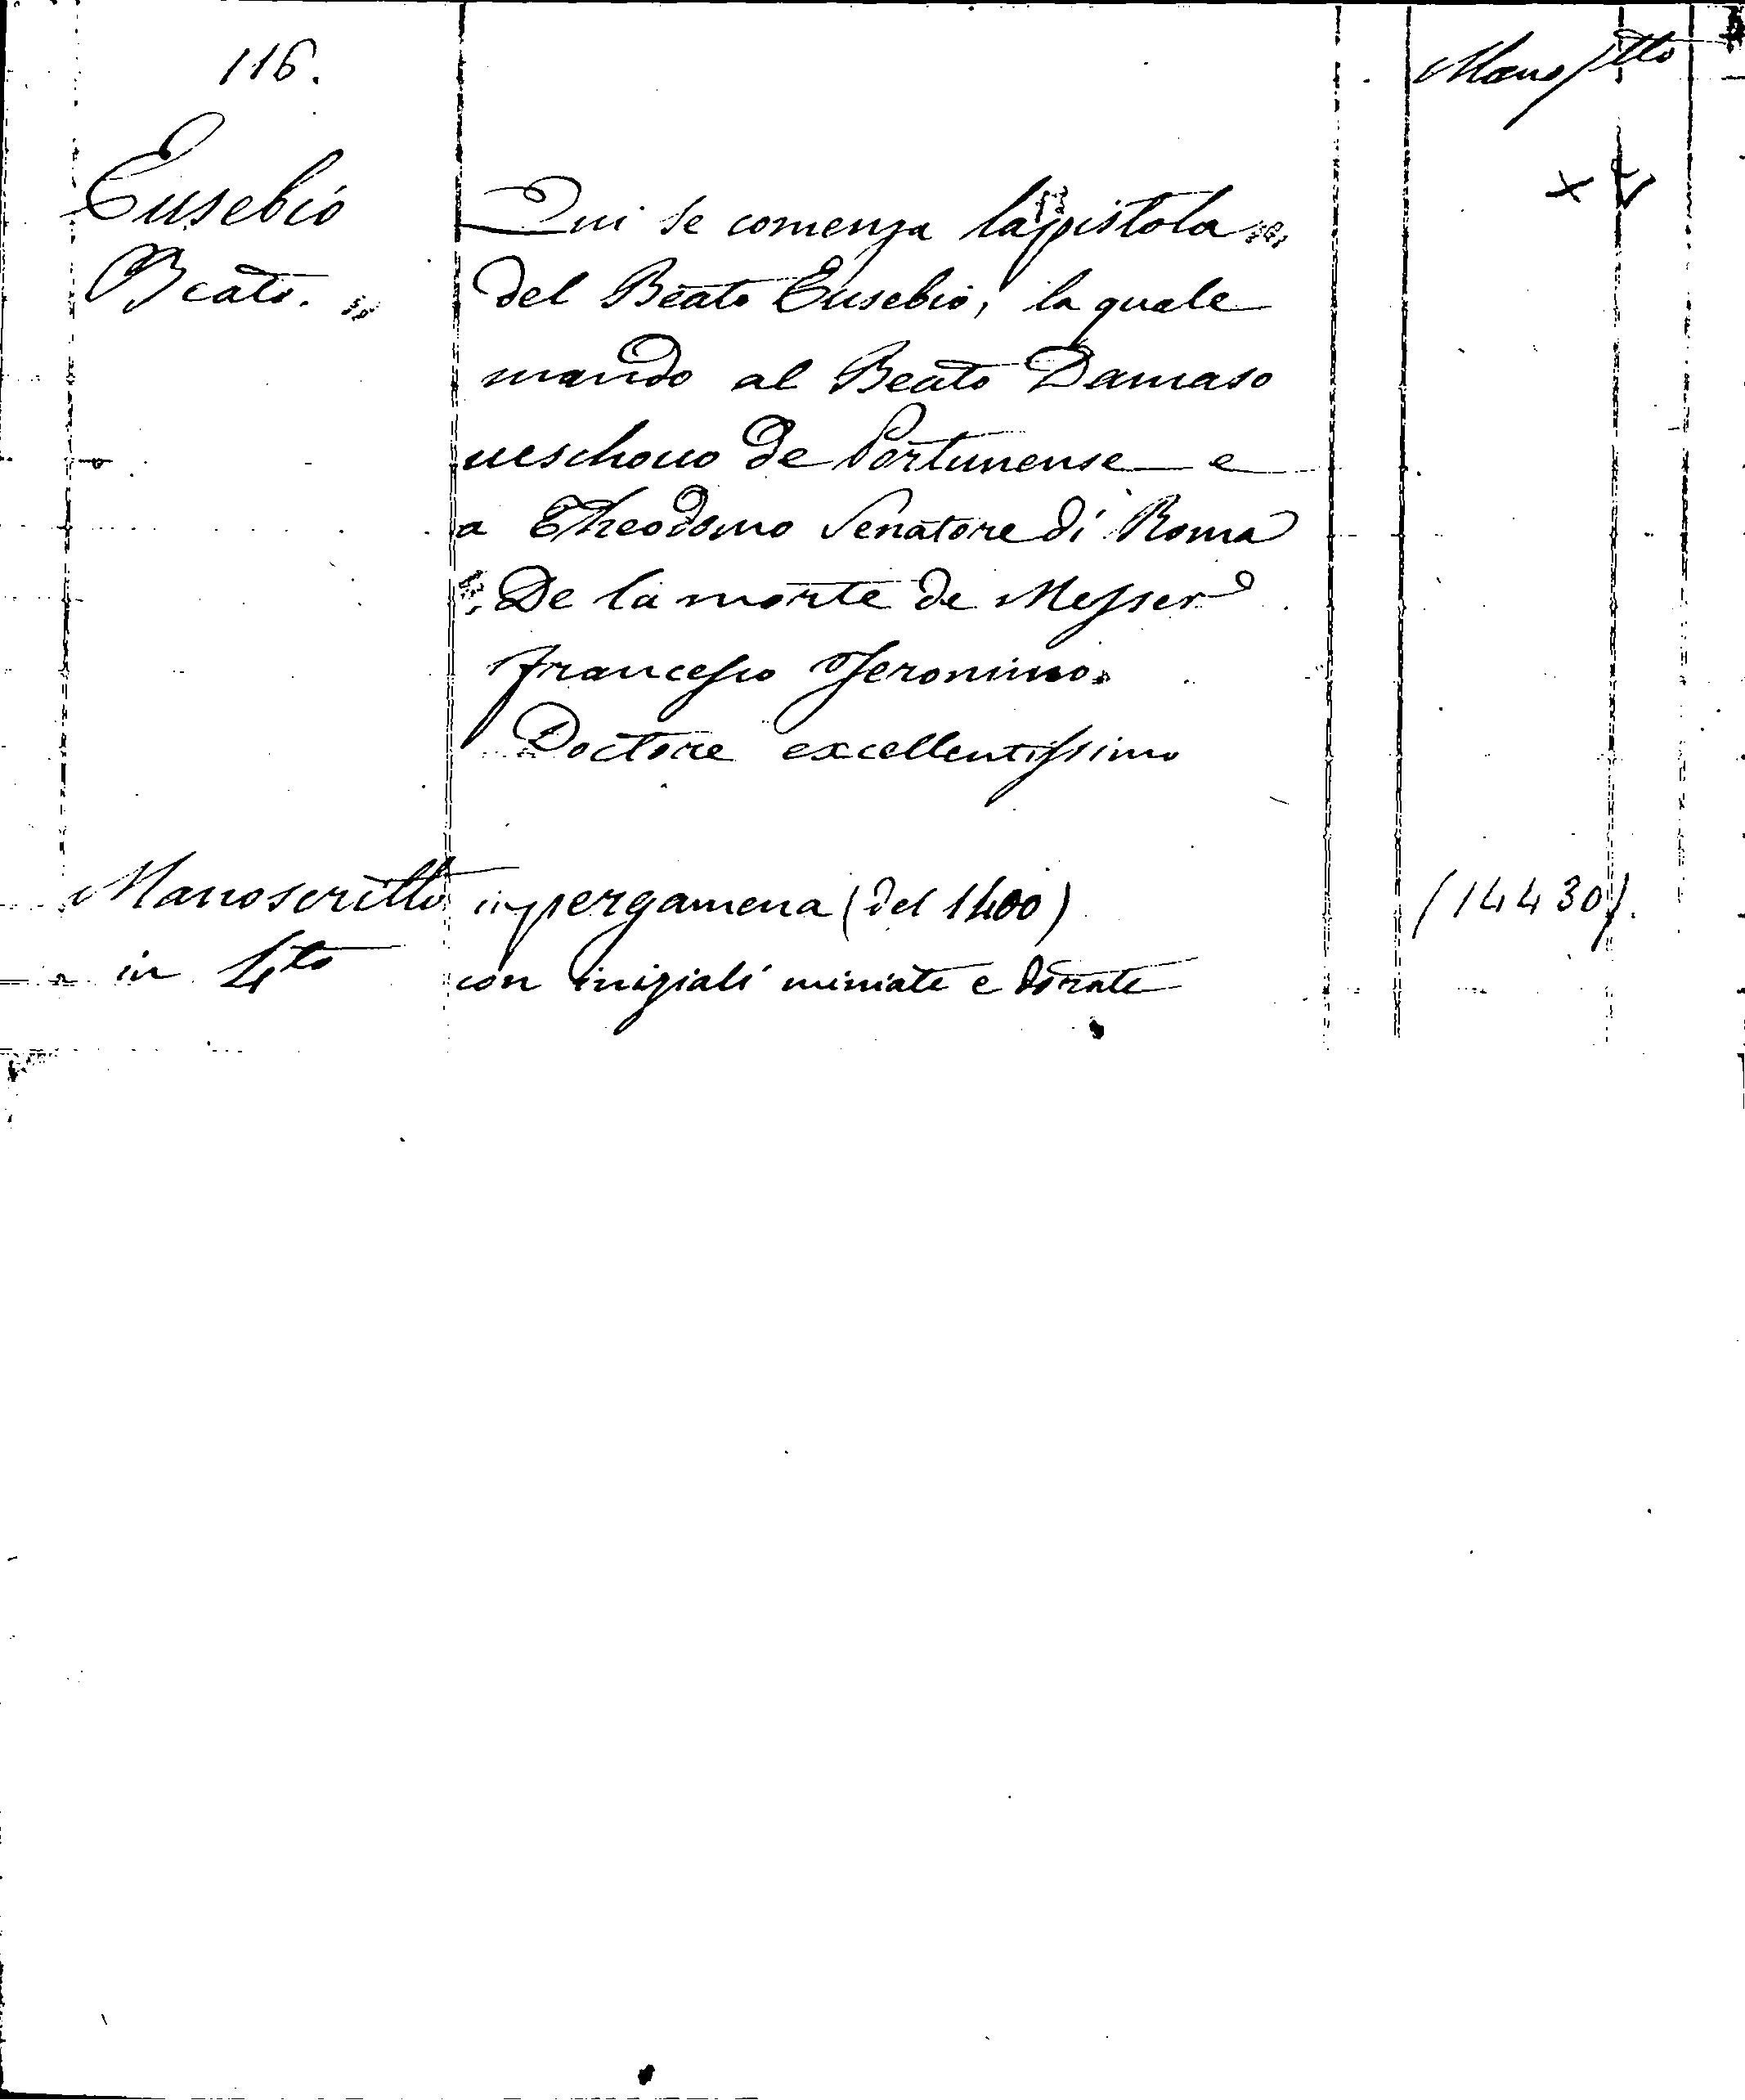 116.
Manositto
Eusebio
Beato.
Qui se comenza lapistola
del Beato Eusebio, la quale
mando al Beato Damaso
ueschouo de Portunense e
a Theodomo Senatore di Roma
De la morte de Messer
Francesco Jeronimo.
Doctore excellentissimo
Manoscritto in pergamena (del 1400)
(14430).
in 4to con iniziali miniate e dorate